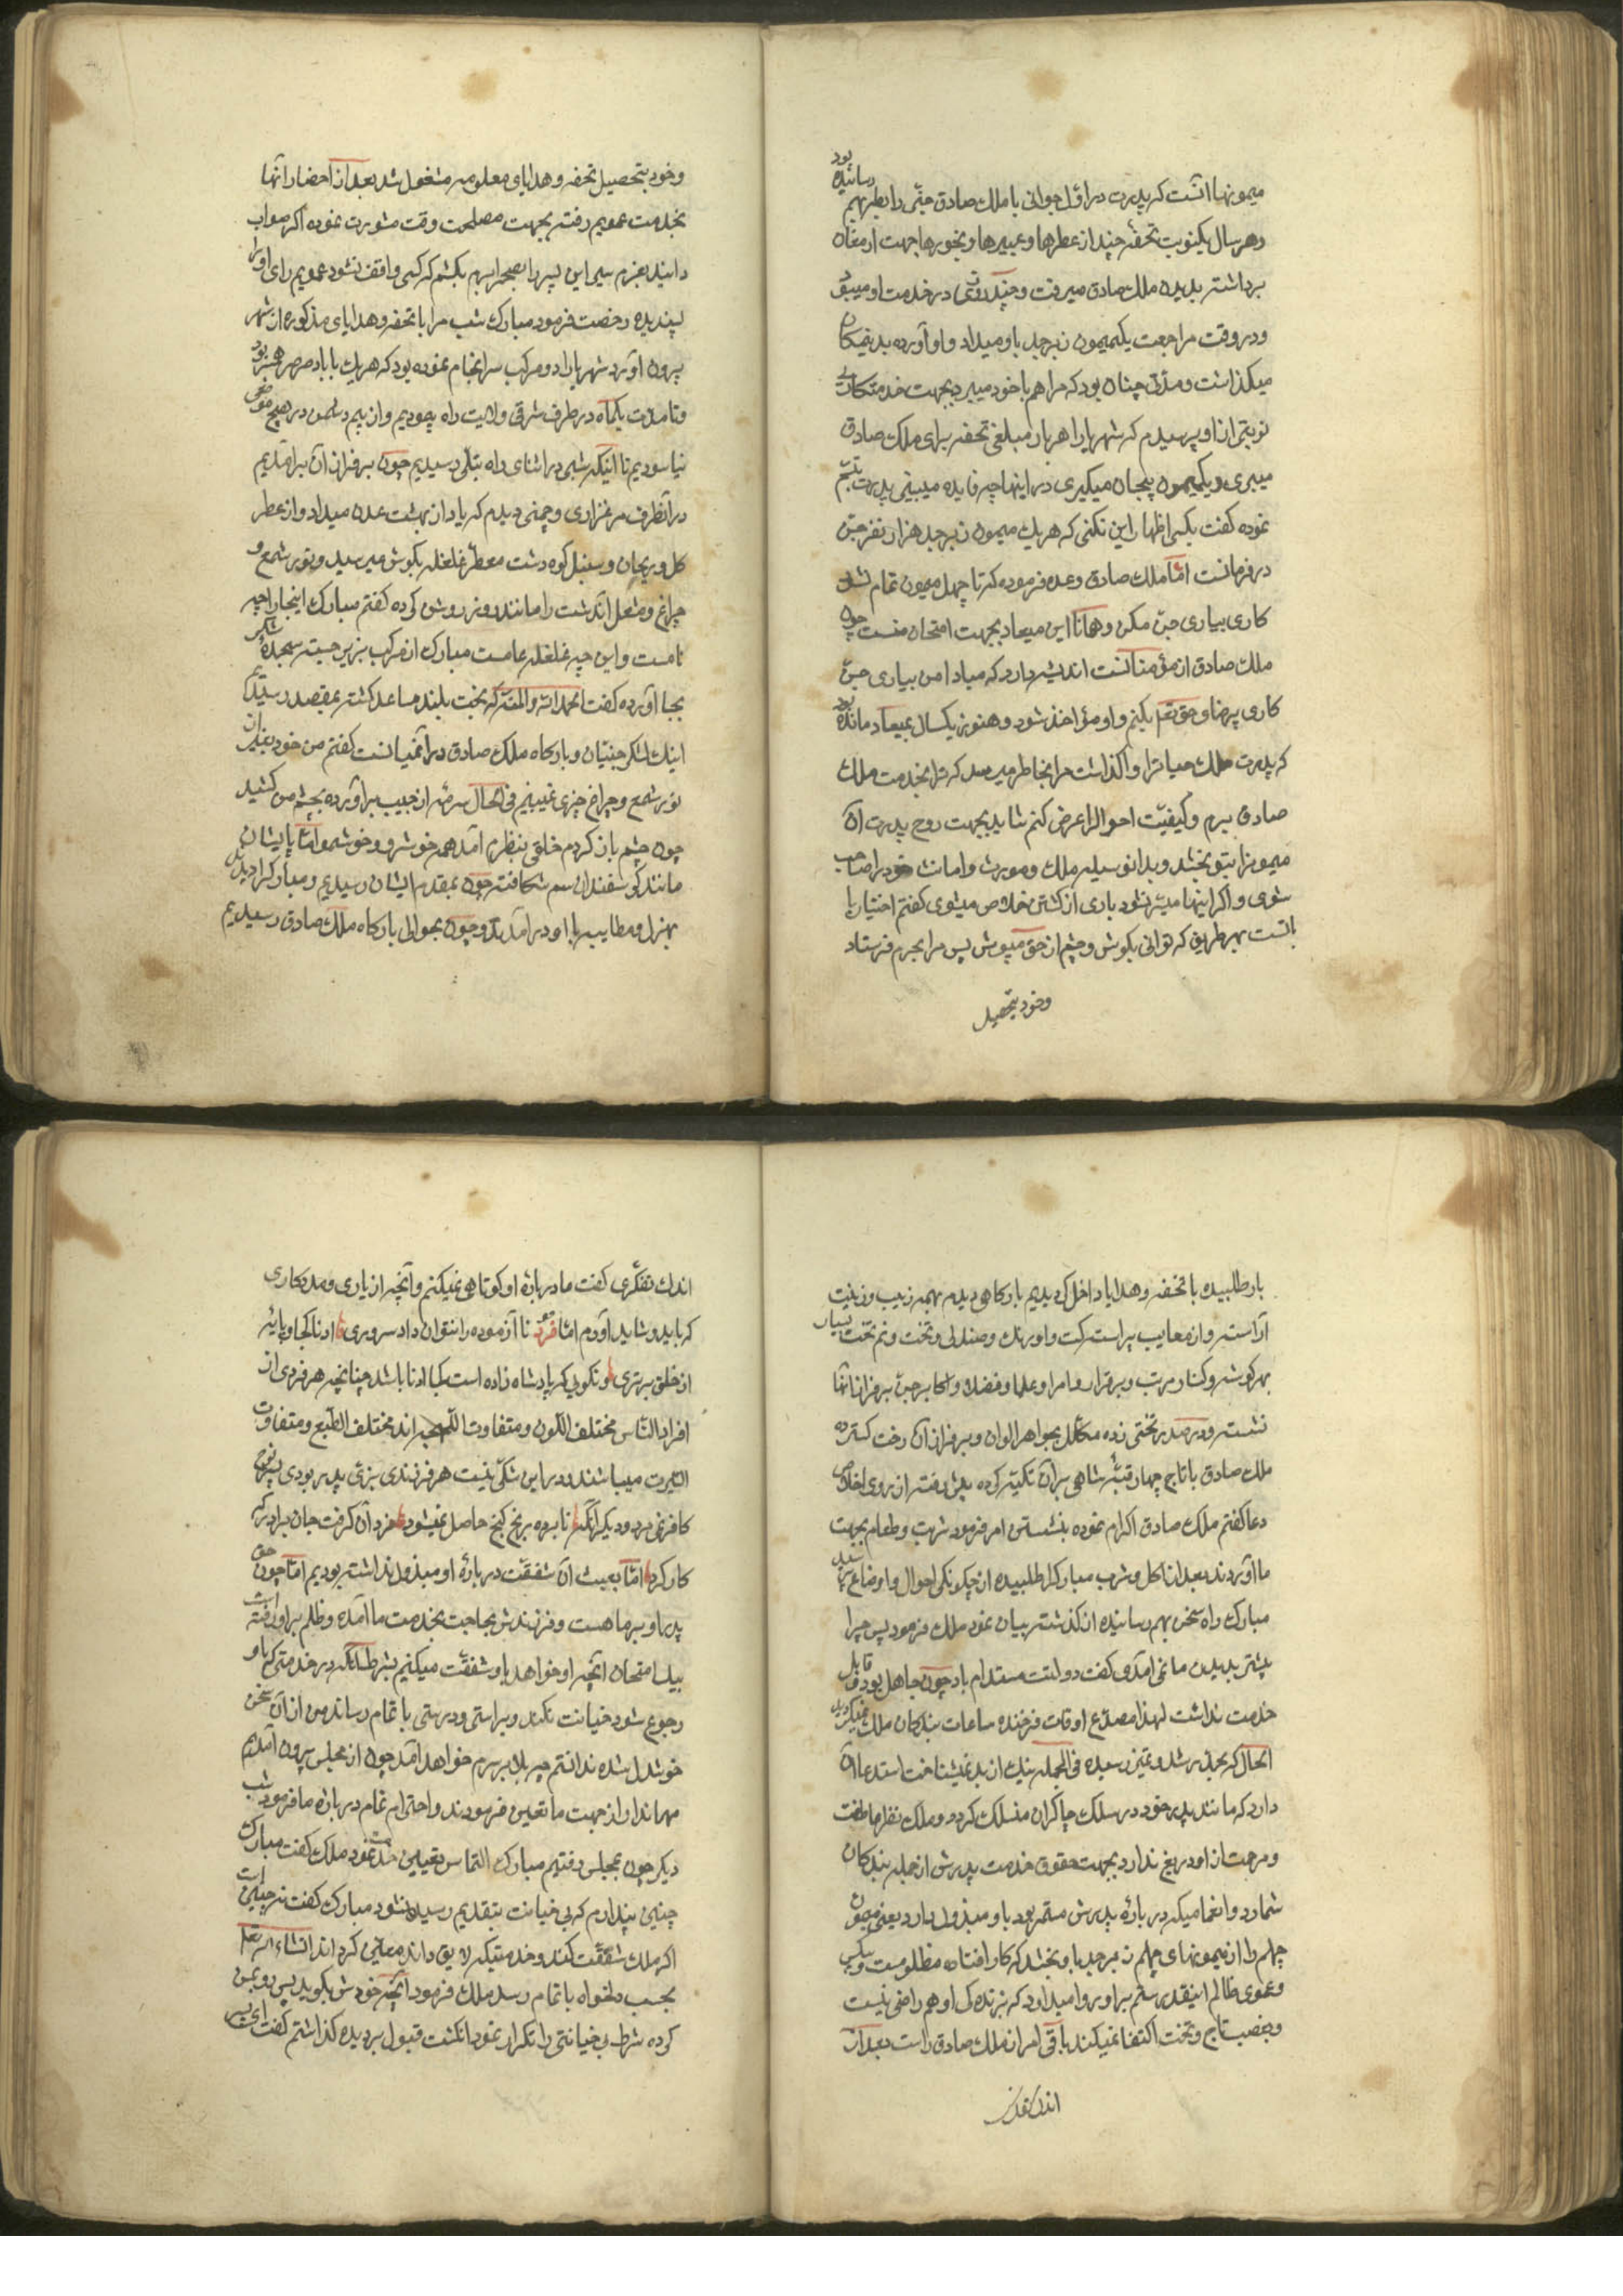 میمونها آنست که پدرت در اوّل جوانی با ملک صادق جنّی رابطه بهم رسانیده بود
و هر سال یکنوبت تحفهٔ چند از عطرها و عبیرها و بخورها جهت ارمغان
برداشته بدیدن ملک صادق میرفت و چند روزی در خدمت او میبود
و در وقت مراجعت یکمیمون زبرجد باو میداد و او آورده بدینمکان
میگذاشت و مدّتی چنان بود که مرا هم با خود میبرد بجهت خدمتکاری
نوبتی از او پرسیدم که شهریارا هر بار مبلغی تحفه برای ملک صادق
میبری و یکمیمون بیجان میگیری در اینها چه فایده میبینی پدرت تبسّم
نموده گفت بکسی اظهار این نکنی که هر یک میمون زبرجد هزار نفر جنّ
در فرمانست امّا ملک صادق وعده فرموده که تا چهل میمون تمام نشود
کاری بیاری جنّ مکن و همانا این میعاد بجهت امتحان منست چون
ملک صادق از مؤمنانست اندیشه دارد که مبادا من بیاری جنّ
کاری بیرضای حق تع بکنم و او مؤاخذ شود و هنوز یکسال بمیعاد مانده بود
که پدرت ملک حیات را واگذاشت مرا بخاطر میرسد که ترا بخدمت ملک
صادق برم و کیفیّت احوال را عرض کنم شاید بجهت روح پدرت آن
میمونرا بتو بخشد و بدانوسیله ملک و موروث و امانت خود را صاحب
شوی و اگر اینها میسّر نشود باری از کشتن خلاص میشوی گفتم اختیار با
تست بهر طریق که توانی بکوش و چشم از حق مپوش پس مرا بحرم فرستاد
و خود بتحصیل
و خود بتحصیل تحفه و هدایای معلومه مشغول شد بعد از احضار آنها
بخدمت عمویم رفته بجهت مصلحت وقت مشورت نموده اگر صواب
دانید بعزم سیر این پسر را بصحرا برم بکشم که کسی واقف نشود عمویم رای او را
پسندیده رخصت فرمود مبارک شب مرا با تحفه و هدایای مذکوره از شهر
بیرون آورد شهریارا دو مرکب سرانجام نموده بود که هر یک با باد صرصر همسر بود
و تا مدّت یکماه در طرف شرقی ولایت راه پیمودیم و از بیم دشمن در هیچ موضعی
نیاسودیم تا اینکه شبی در اثنای راه بتلّی رسیدیم چون بر فراز آن برآمدیم
در آنطرف مرغزاری و چمنی دیدم که یاد از بهشت عدن میداد و از عطر
گل و ریحان و سنبل کوه و دشت معطّر غلغله بگوش میرسید و نور شمع و
چراغ و مشعل آندشت را مانند روز روشن کرده گفتم مبارک اینجا را چه
نامست و این چه غلغله عامست مبارک از مرکب بزیر جسته سجده شکر
بجا آورده گفت الحمدلله والمنّه که بخت بلند مساعد گشته بمقصد رسیدیم
اینک لشکر جنّیان و بارگاه ملک صادق در آنمیانست گفتم من خود بغیر از آن
نور شمع و چراغ چیزی نمیبینم فی الحال سرمه از جیب برآورده بچشم من کشید
چون چشم باز کردم خلقی بنظرم آمد همه خوشرو و خوشمو امّا پاایشان
مانند گوسفندان سم شکافته چون بمقدم ایشان رسیدیم و مبارک را دیدند
بهزل و مطایبه با او درآمدند و چون بحوالی بارگاه ملک صادق رسیدیم
بار طلبیده با تحفه و هدایا داخل گردیدیم بارگاهی دیدم بهمه زیب و زینت
آراسته و از معایب پیراسته کت و اورنگ و صندلی و تخت و نیم تخت بسیار
بهر گوشه و کنار مرتب و برقرار و امرا و علما و فضلا و اکابر جنّ بر فراز آنها
نشسته و در صدر تختی زده مکلّل بجواهر الوان و بر فراز آن رخت گسترده
ملک صادق با تاج چهار قبّهٔ شاهی بر آن تکیّه کرده پیش رفته از روی اخلاص
دعا گفتم ملک صادق اکرام نموده بنشستن امر فرمود شربت و طعام بجهت
ما آوردند بعد از اکل و شرب مبارک را طلبیده از چگونگی احوال و اوضاع پرسید
مبارک راه سخن بهم رسانیده از گذشته بیان نمود ملک فرمود پس چرا
پیشتر بدیدن ما نمی آمدی گفت دولتت مستدام باد چون جاهل بود و قابل
خدمت نداشت لهذا مصدّع اوقات فرخنده ساعات بندگان ملک نمیگردید
الحال که بحد رشد و تمیز رسیده فی الجمله نیک از بد میشناخت استدعا آن
دارد که مانند پدر خود در سلک چاکران منسلک گردد و ملک نظر عاطفت
و مرحمت از او دریغ ندارد بجهت حقوق خدمت پدرش از جمله بندگان
شمارد و انعامیکه در بارهٔ پدرش مستمر بود باو مبذول دارد یعنی میمون
چهلم را از میمونهای چهلم زبرجد باو بخشد که کار افتاده مظلومست و بیکس
و عموی ظالم اینقدر ستم بر او روا میدارد که بزندگی او هم راضی نیست
و بغصب تاج و تخت اکتفا نمیکند باقی امر از ملک صادق راست بعد از
اندک تفکّری
اندک تفکّری گفت ما در بارهٔ او کوتاهی نمیکنم و آنچه از یاری و مددکاری
که باید و شاید آورم امّا فرد تا آزموده را نتوان داد سروری ادنا کجا و پایهٔ
از خلق برتری و نگوئی که پادشاه زاده است کجا ادنا باشد چنانچه هر فردی از
افراد النّاس مختلف اللّون و متفاوت اللّهجه اند مختلف الطّبع و متفاوت
السّیرت میباشند و در این شکّی نیست هر فرزندی بزیّ پدر بودی پسر نوح
کافر نمی مرد و دیگر آنکه نابرده رنج گنج حاصل نمیشود مزد آن گرفت جان برادر که
کار کرد امّا بعیث آن شفقّت در بارهٔ او مبذول نداشته بودیم امّا چون حق
پدر او بر ما هست و فرزندش بحاجت بخدمت ما آمده و ظلم بر او رفته است
بیلا امتحان آنچه او خواهد باو شفقّت میکنیم بشرط آنکه در خدمتی که باو
رجوع شود خیانت نکند و براستی و درستی باتمام رساند من از آن سخن
خوشدل شده ندانستم چه بلا بر سرم خواهد آمد چون از مجلس بیرون آمدیم
مهماندار از جهت ما تعیین فرمودند و احترام تمام در بارهٔ ما فرمود شب
دیگر چون بمجلس رفتیم مبارک التماس تعیین خدمت نمود ملک گفت مبارک
چنین پندارم که بی خیانت بتقدیم رسیده نشود مبارک گفت نه چنین است
اگر ملک شفقّت کند و خدمتیکه لایق داند معیّن گرداند انشاءالله تعه
بحسب دلخواه باتمام رسد ملک فرمود آنچه خودش بگوید پس رو بمن
کرده شرط بی خیانتی را تکرار نمود انگشت قبول بر دیده گذاشتم گفت ای پسر